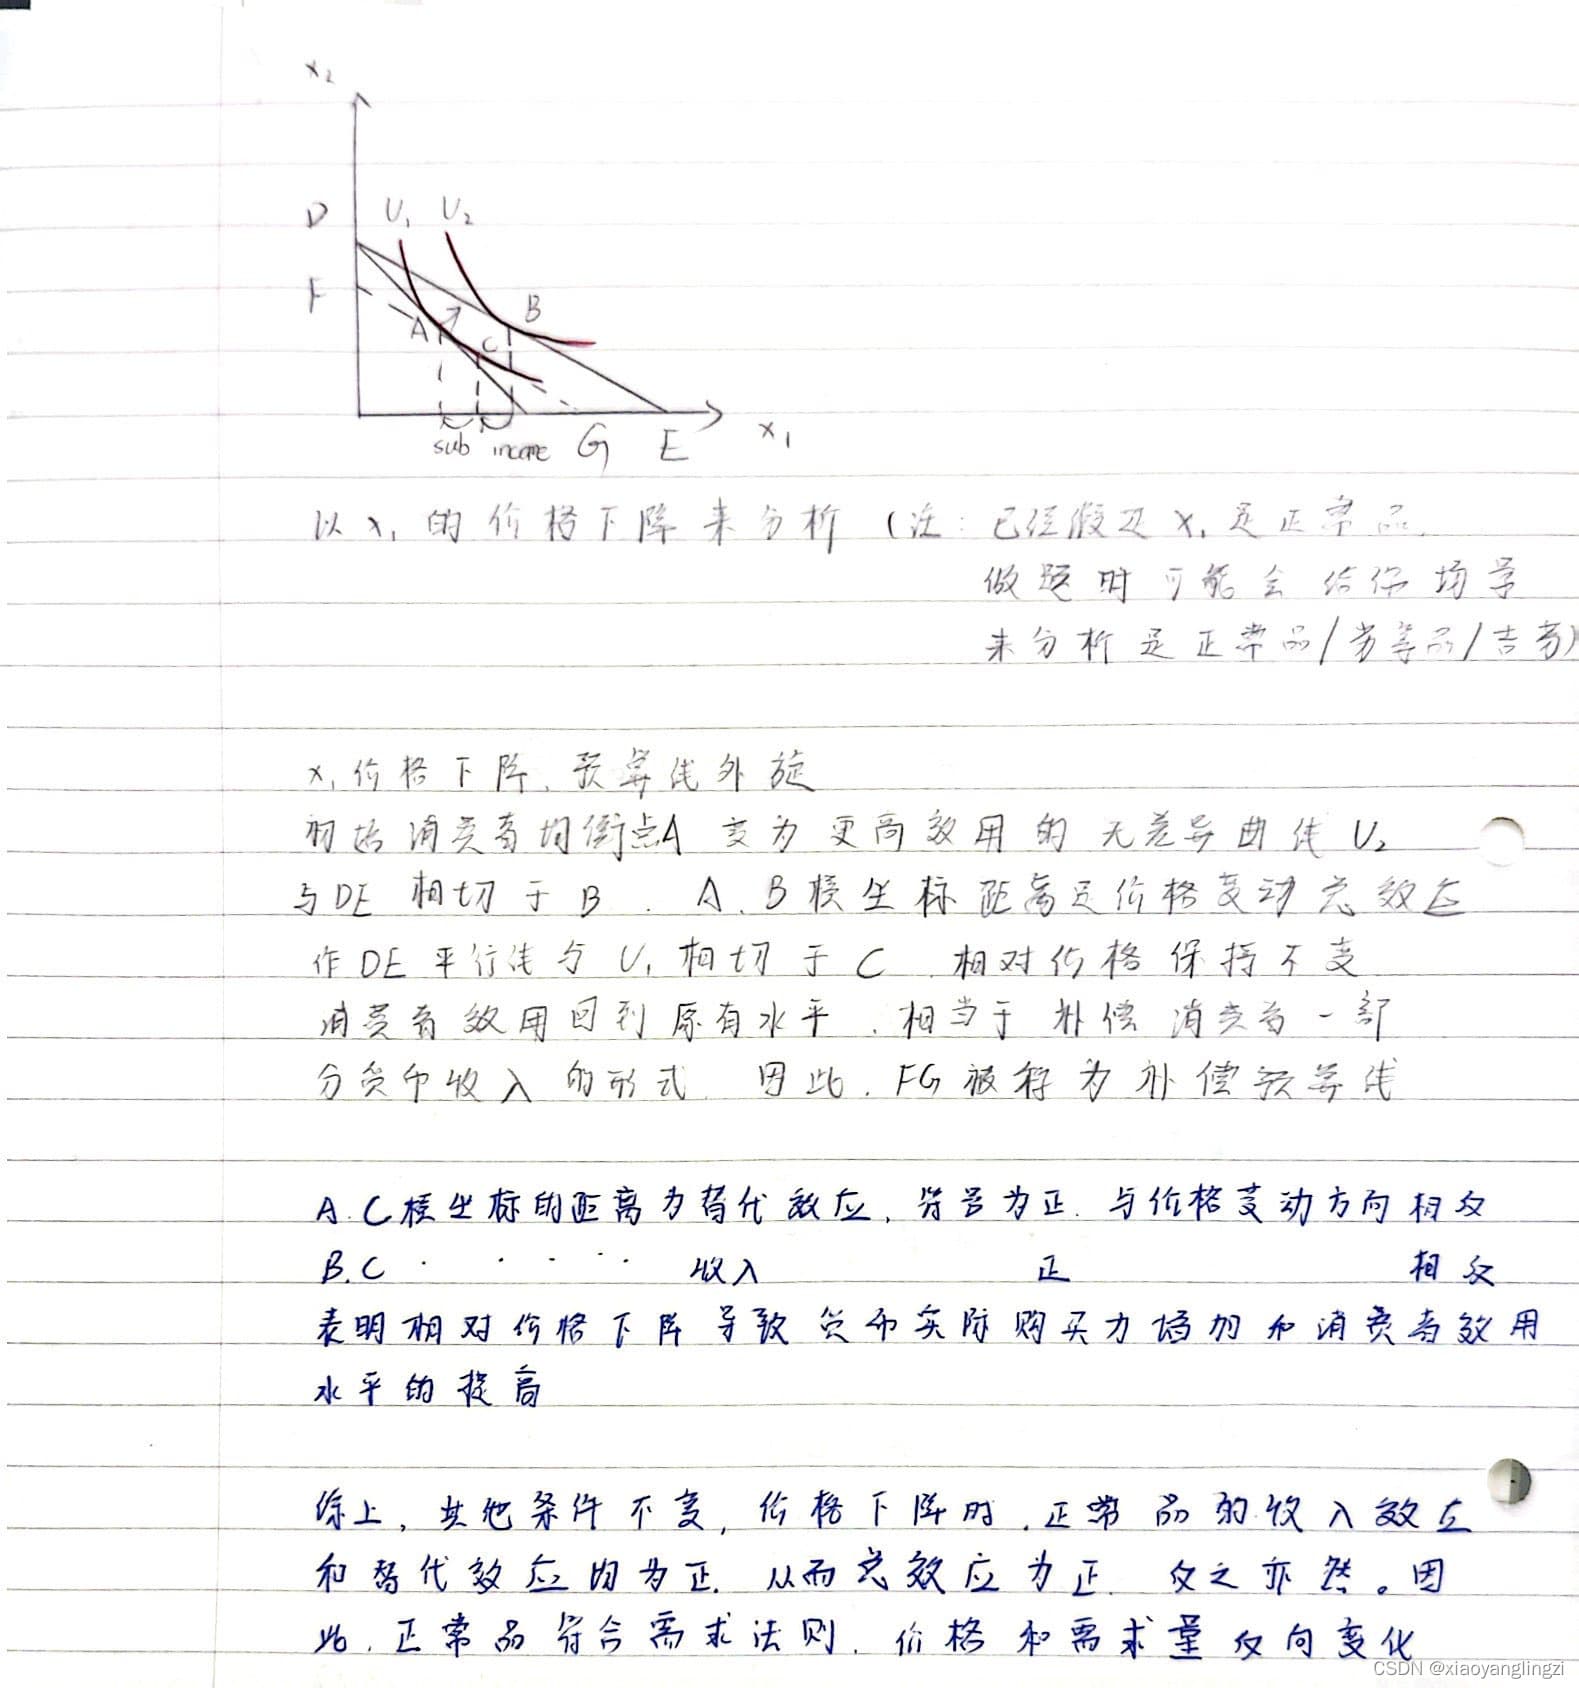 x₂
D
U₁ U₂
F
B
A
C
sub income G E x₁
以x₁的价格下降来分析(注:已经假设x₁是正常品,
做题时可能会给你场景
来分析是正常品/劣等品/吉芬)
x₁价格下降,预算线外旋
初始消费者均衡点A变为更高效用的无差异曲线U₂
与DE相切于B.A、B横坐标距离是价格变动总效应
作DE平行线与U₁相切于C,相对价格保持不变
消费者效用回到原有水平,相当于补偿消费者一部
分货币收入的形式.因此,FG被称为补偿预算线
A.C横坐标的距离为替代效应,符号为正.与价格变动方向相反
B.C · · · · · 收入 正 相反
表明相对价格下降导致货币实际购买力增加和消费者效用
水平的提高
综上,其他条件不变,价格下降时,正常品的收入效应
和替代效应均为正.从而总效应为正.反之亦然。因
此.正常品符合需求法则.价格和需求量反向变化
CSDN @xiaoyanglingzi